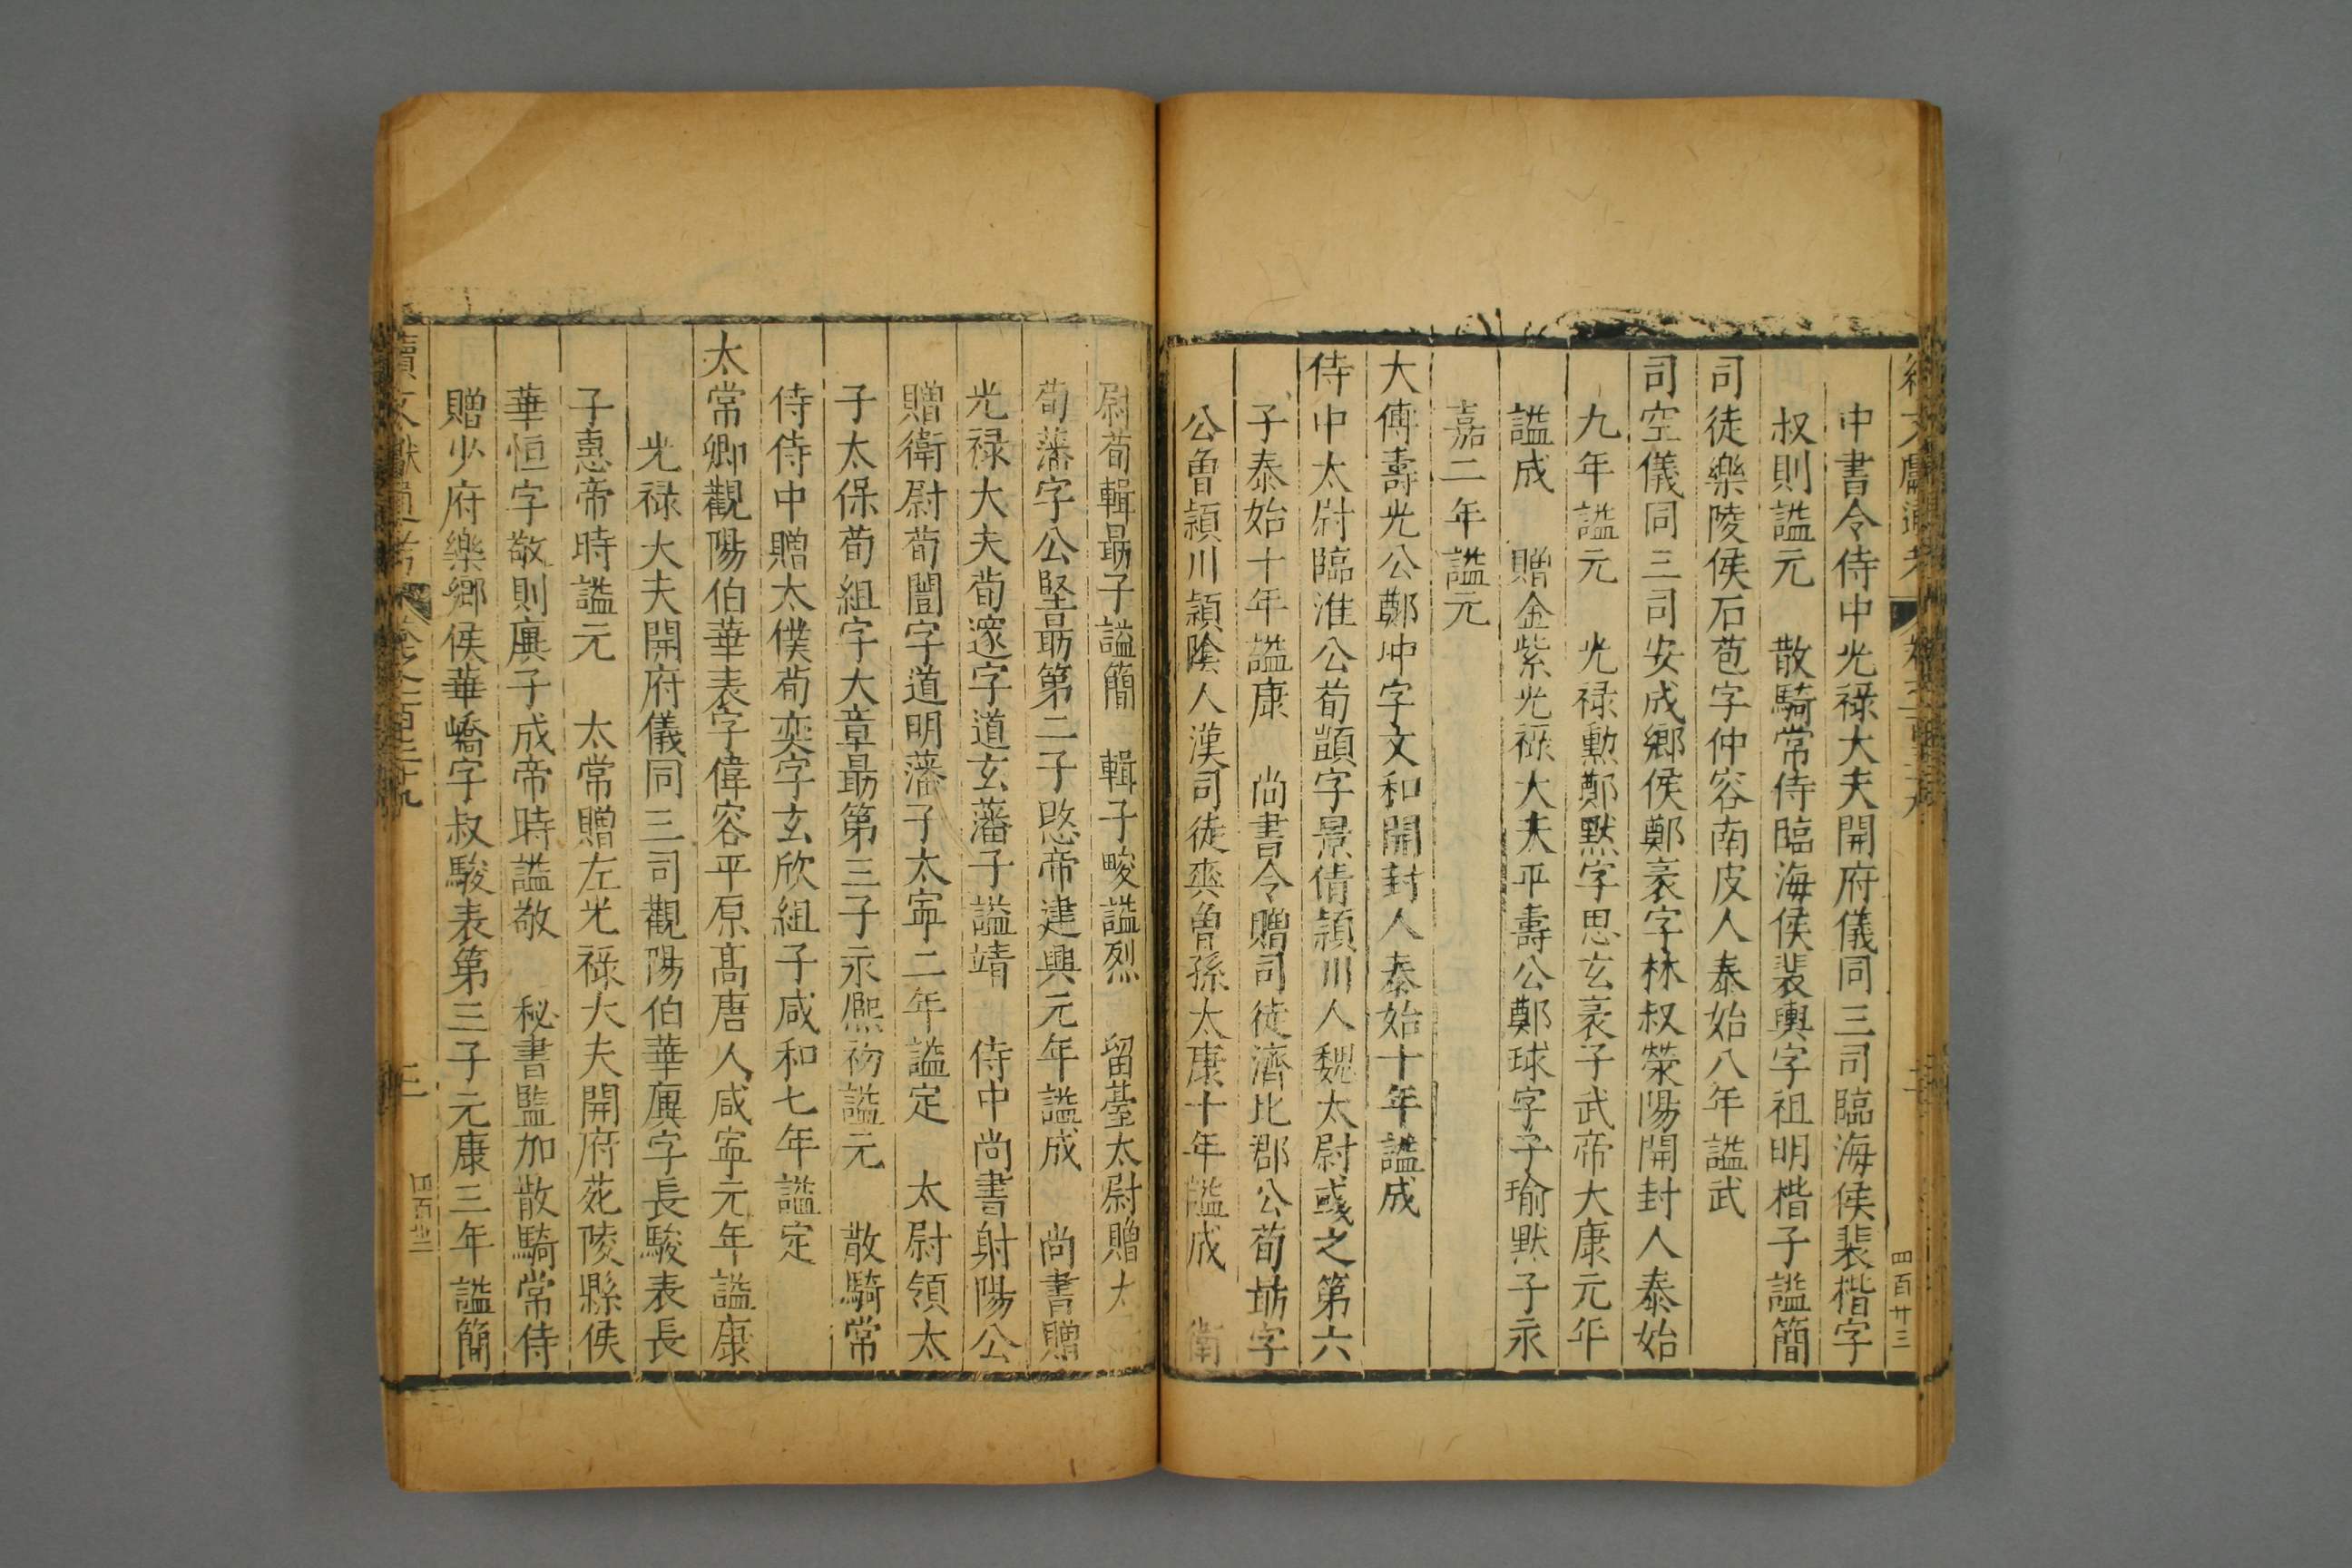 中書令侍中光禄大夫開府儀同三司臨海侯裴楷字
叔則謚元　散騎常侍臨海侯裴輿字祖明楷子謚簡
司徒樂陵侯石苞字仲容南皮人泰始八年謚武
司空儀同三司安成鄉侯鄭袤字林叔滎陽開封人泰始
九年謚元　光禄勳鄭默字思玄袤子武帝大康元年
謚成　贈金紫光祿大夫平壽公鄭球字子瑜默子永
嘉二年謚元
大傅壽光公鄭冲字文和開封人泰始十年謚成
侍中太尉臨淮公荀顗字景倩穎川人魏太尉彧之第六
子泰始十年謚康　尚書令贈司徒濟北郡公荀勗字
公曾穎川穎陰人漢司徒爽曾孫太康十年謚成　衛
尉荀輯勗子謚簡　輯子畯謚烈　留臺太尉贈太
荀藩字公堅勗第二子愍帝建興元年謚成　尚書贈
光禄大夫荀邃字道玄藩子謚靖　侍中尚書射陽公
贈衛尉荀闓字道明藩子太寜二年謚定　太尉領太
子太保荀組字大章勗第三子永熈初謚元　散騎常
侍侍中贈太僕荀奕字玄欣組子咸和七年謚定
太常卿觀陽伯華表字偉容平原高唐人咸寜元年謚康
光禄大夫開府儀同三司觀陽伯華廙字長駿表長
子惠帝時謚元　太常贈左光祿大夫開府苑陵縣侯
華恒字敬則廙子成帝時謚敬　秘書監加散騎常侍
贈少府樂鄉侯華嶠字叔駿表第三子元康三年謚簡
三
四百廿三